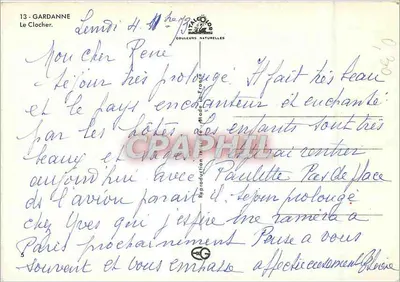 13 - GARDANNE
Le Clocher.
COULEURS NATURELLES
Lundi 4
Mon cher René
Séjour très prolongé Il fait très beau
et le pays enchanteur et enchanté
par les hôtes. Les enfants sont très
beaux et
rentrer
aujourd'hui avec Paulette Pas de place
ds l'avion parait il. Séjour prolongé
chez Yves qui j'espère me ramèn a
Paris prochainement Pense a vous
souvent et vous embrasse affectueusement
CPAPHIL
Reproduction
Made in France
5